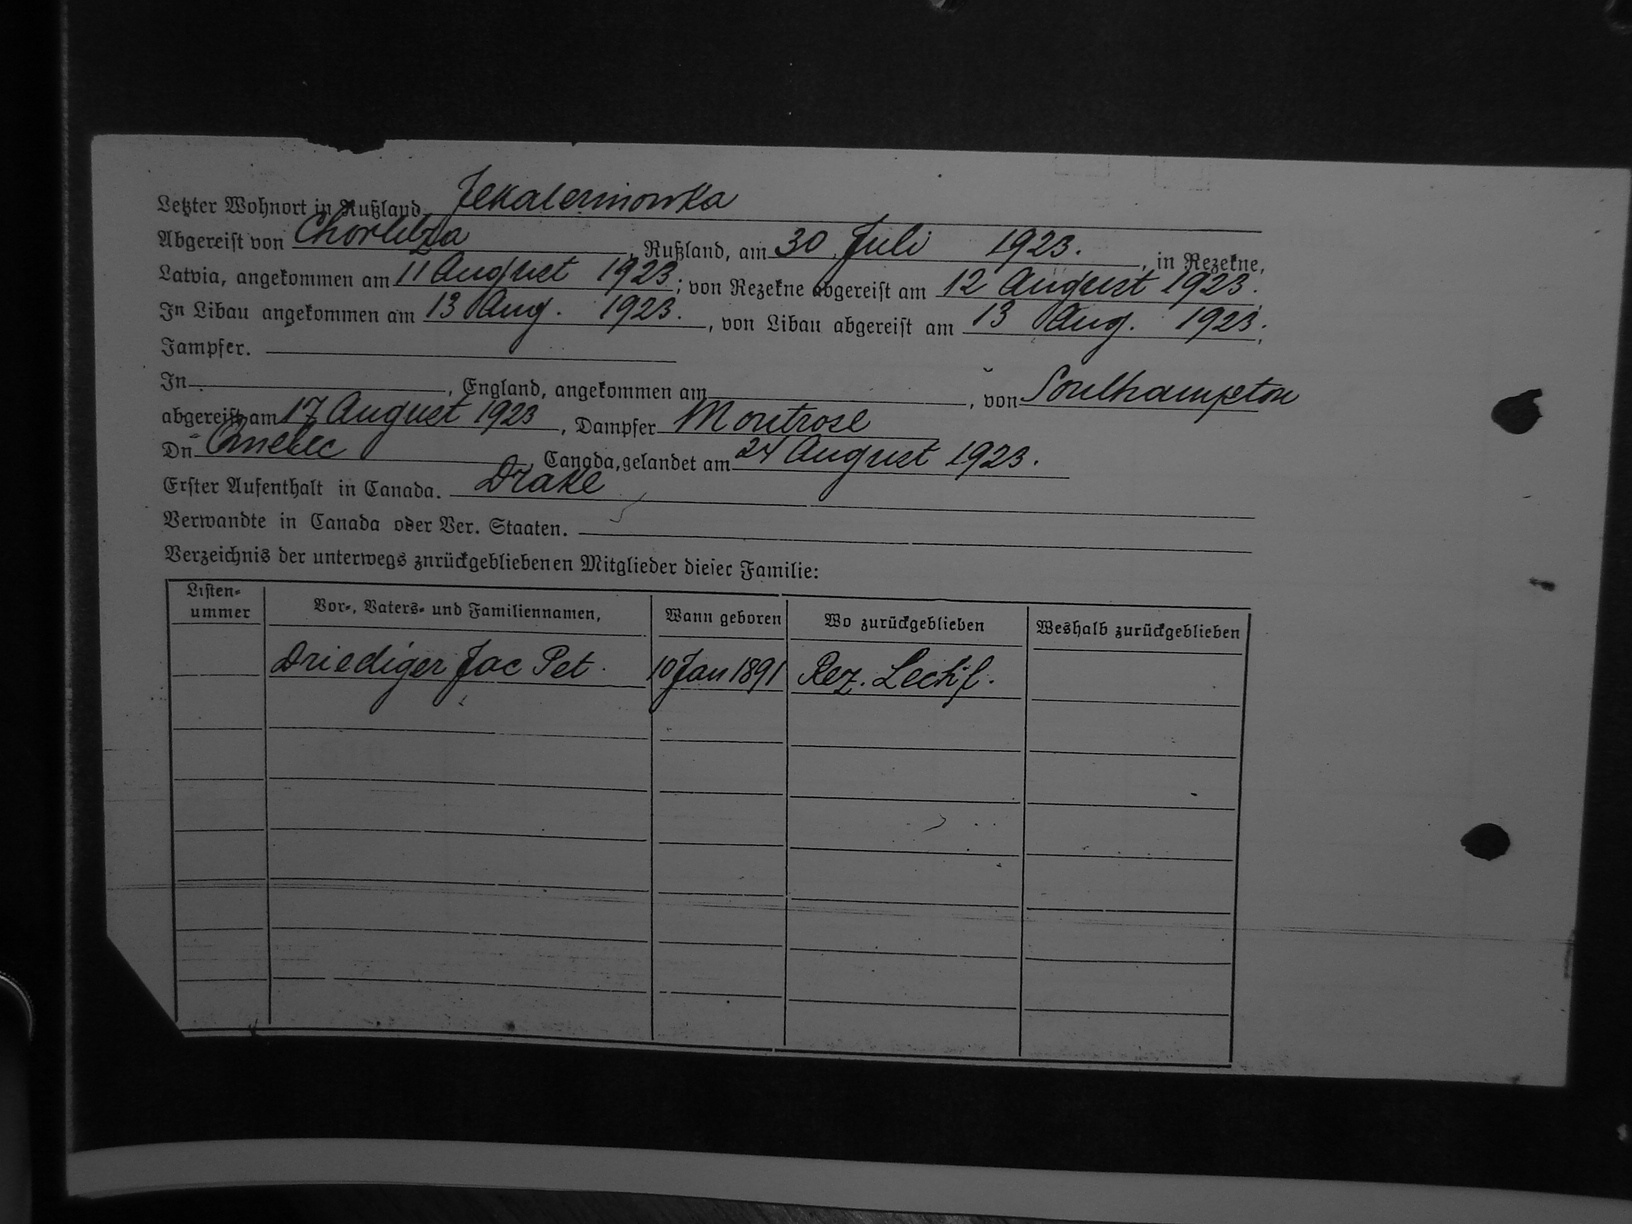 Letzter Wohnort in Rußland Jekaterinowka
Abgereist von Chortitza, Rußland, am 30 Juli 1923., in Rezekne,
Latvia, angekommen am 11 August 1923; von Rezekne abgereist am 12 August 1923.
In Libau angekommen am 13 Aug. 1923., von Libau abgereist am 13 Aug. 1923.;
Jampfer.
In, England, angekommen am, von Southampton
abgereist am 17 August 1923, Dampfer Montrose
Dn Quebec, Canada, gelandet am 24 August 1923.
Erster Aufenthalt in Canada. Drake
Verwandte in Canada oder Ver. Staaten.
Verzeichnis der unterwegs znrückgebliebenen Mitglieder diesec Familie:
Listen-
ummer Vor-, Vaters- und Familiennamen, Wann geboren Wo zurückgeblieben Weshalb zurückgeblieben
Driediger Jac Pet. 10 Jan 1891 Rez. Lechf.